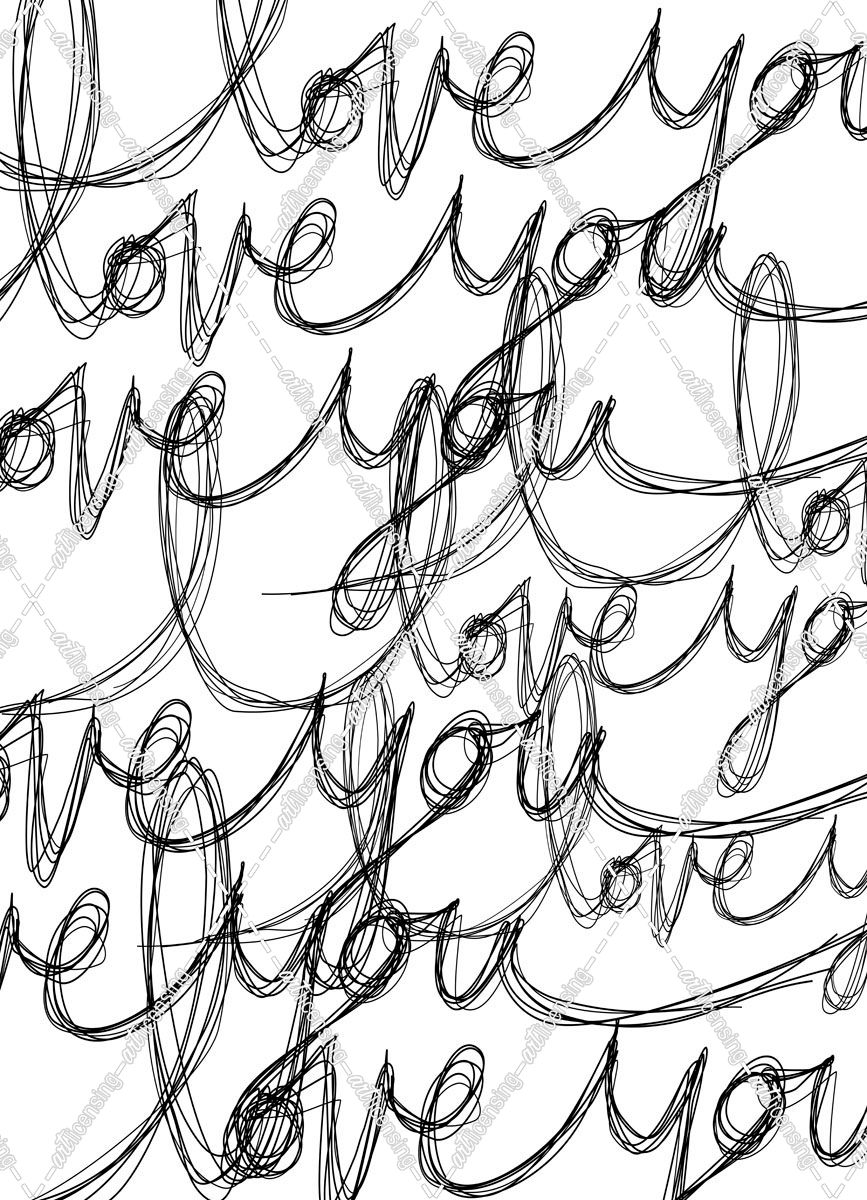 love you
love you
love you
love you
love you
love y
e you
love you
artlicensing